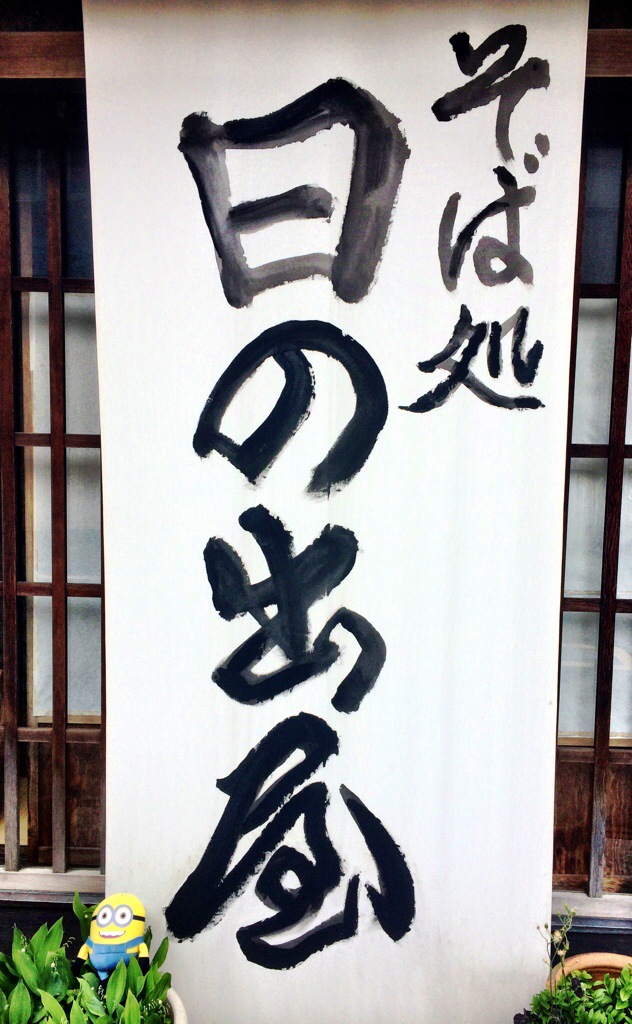 そば処
日の出屋